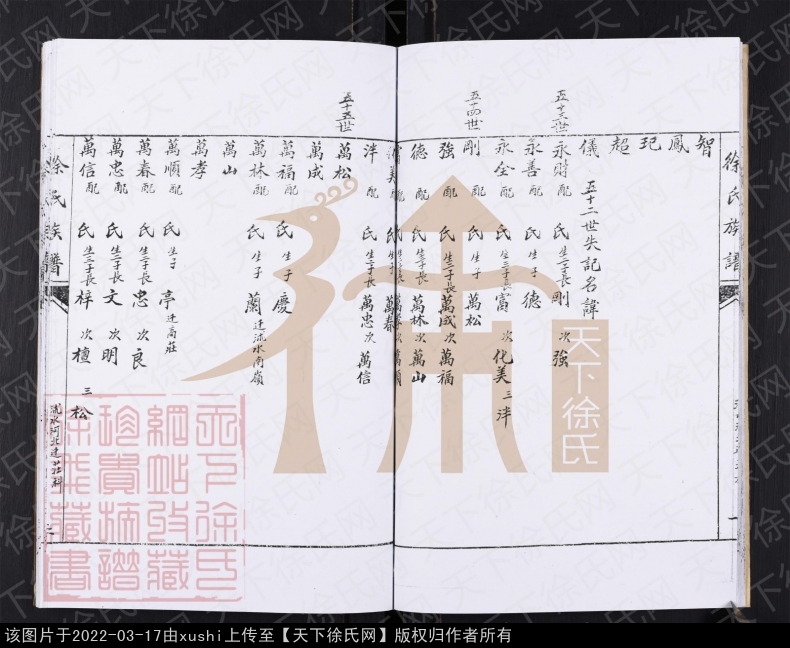 徐氏族譜
智
鳳
玘
超
儀 五十二世失記名諱
五十三世
永財配 氏生二子長剛次強
永善配 氏生子德
永全配 氏生三子長富次化美三泮
五十四世
剛配 氏生子萬松
強配 氏生二子長萬成次萬福
德配 氏生二子長萬林次萬山
泮配 氏生二子長萬忠次萬信
五十五世
萬松
萬成
萬福配 氏生子慶
萬林配 氏生子蘭迁流水南嶺
萬山
萬孝
萬順配 氏生子亭迁高莊
萬春配 氏生二子長忠次良
萬忠配 氏生二子長文次明
萬信配 氏生三子長梓次檀三松
徐氏族譜
天下徐氏
天下徐氏網站收藏珍貴族譜
该图片于2022-03-17由xushi上传至【天下徐氏网】版权归作者所有